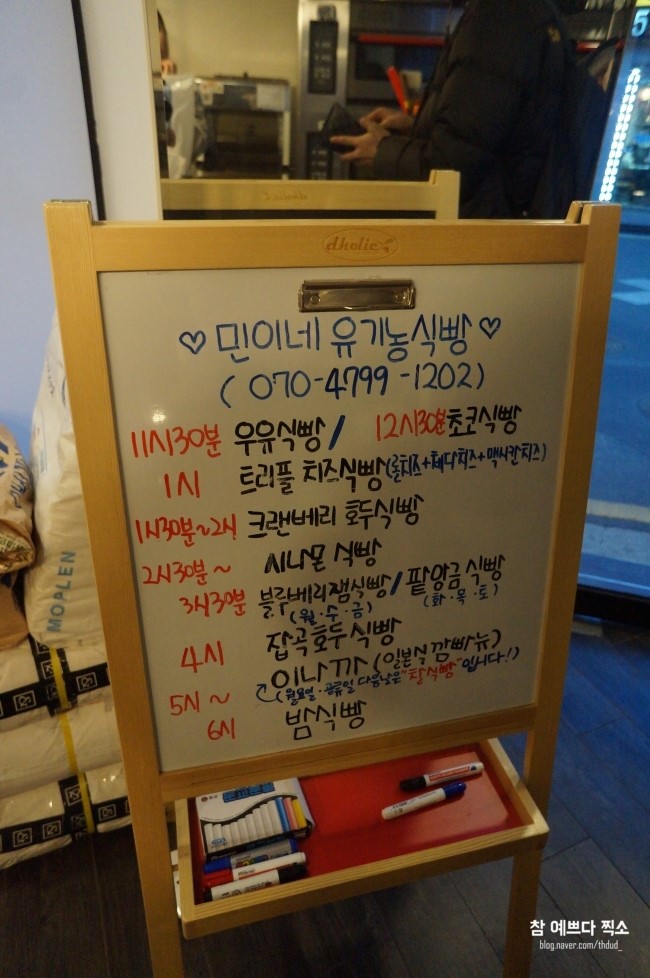 5
dholic
♡ 민이네 유기농식빵 ♡
( 070-4799-1202)
11시30분 우유식빵 / 12시30분 초코식빵
1시 트리플 치즈식빵 (롤치즈+체다치즈+맥시칸치즈)
1시30분~2시 크랜베리 호두식빵
2시30분~ 시나몬 식빵
3시30분 블루베리잼식빵 / 팥앙금 식빵
(월·수·금) (화·목·토)
4시 잡곡호두식빵
이나까 (일본식 깜빠뉴)
5시~ (월요일·공휴일 다음날은 "찰식빵" 입니다!)
6시 밤식빵
MOPLEN
참 예쁘다 찍소
blog.naver.com/thdud_